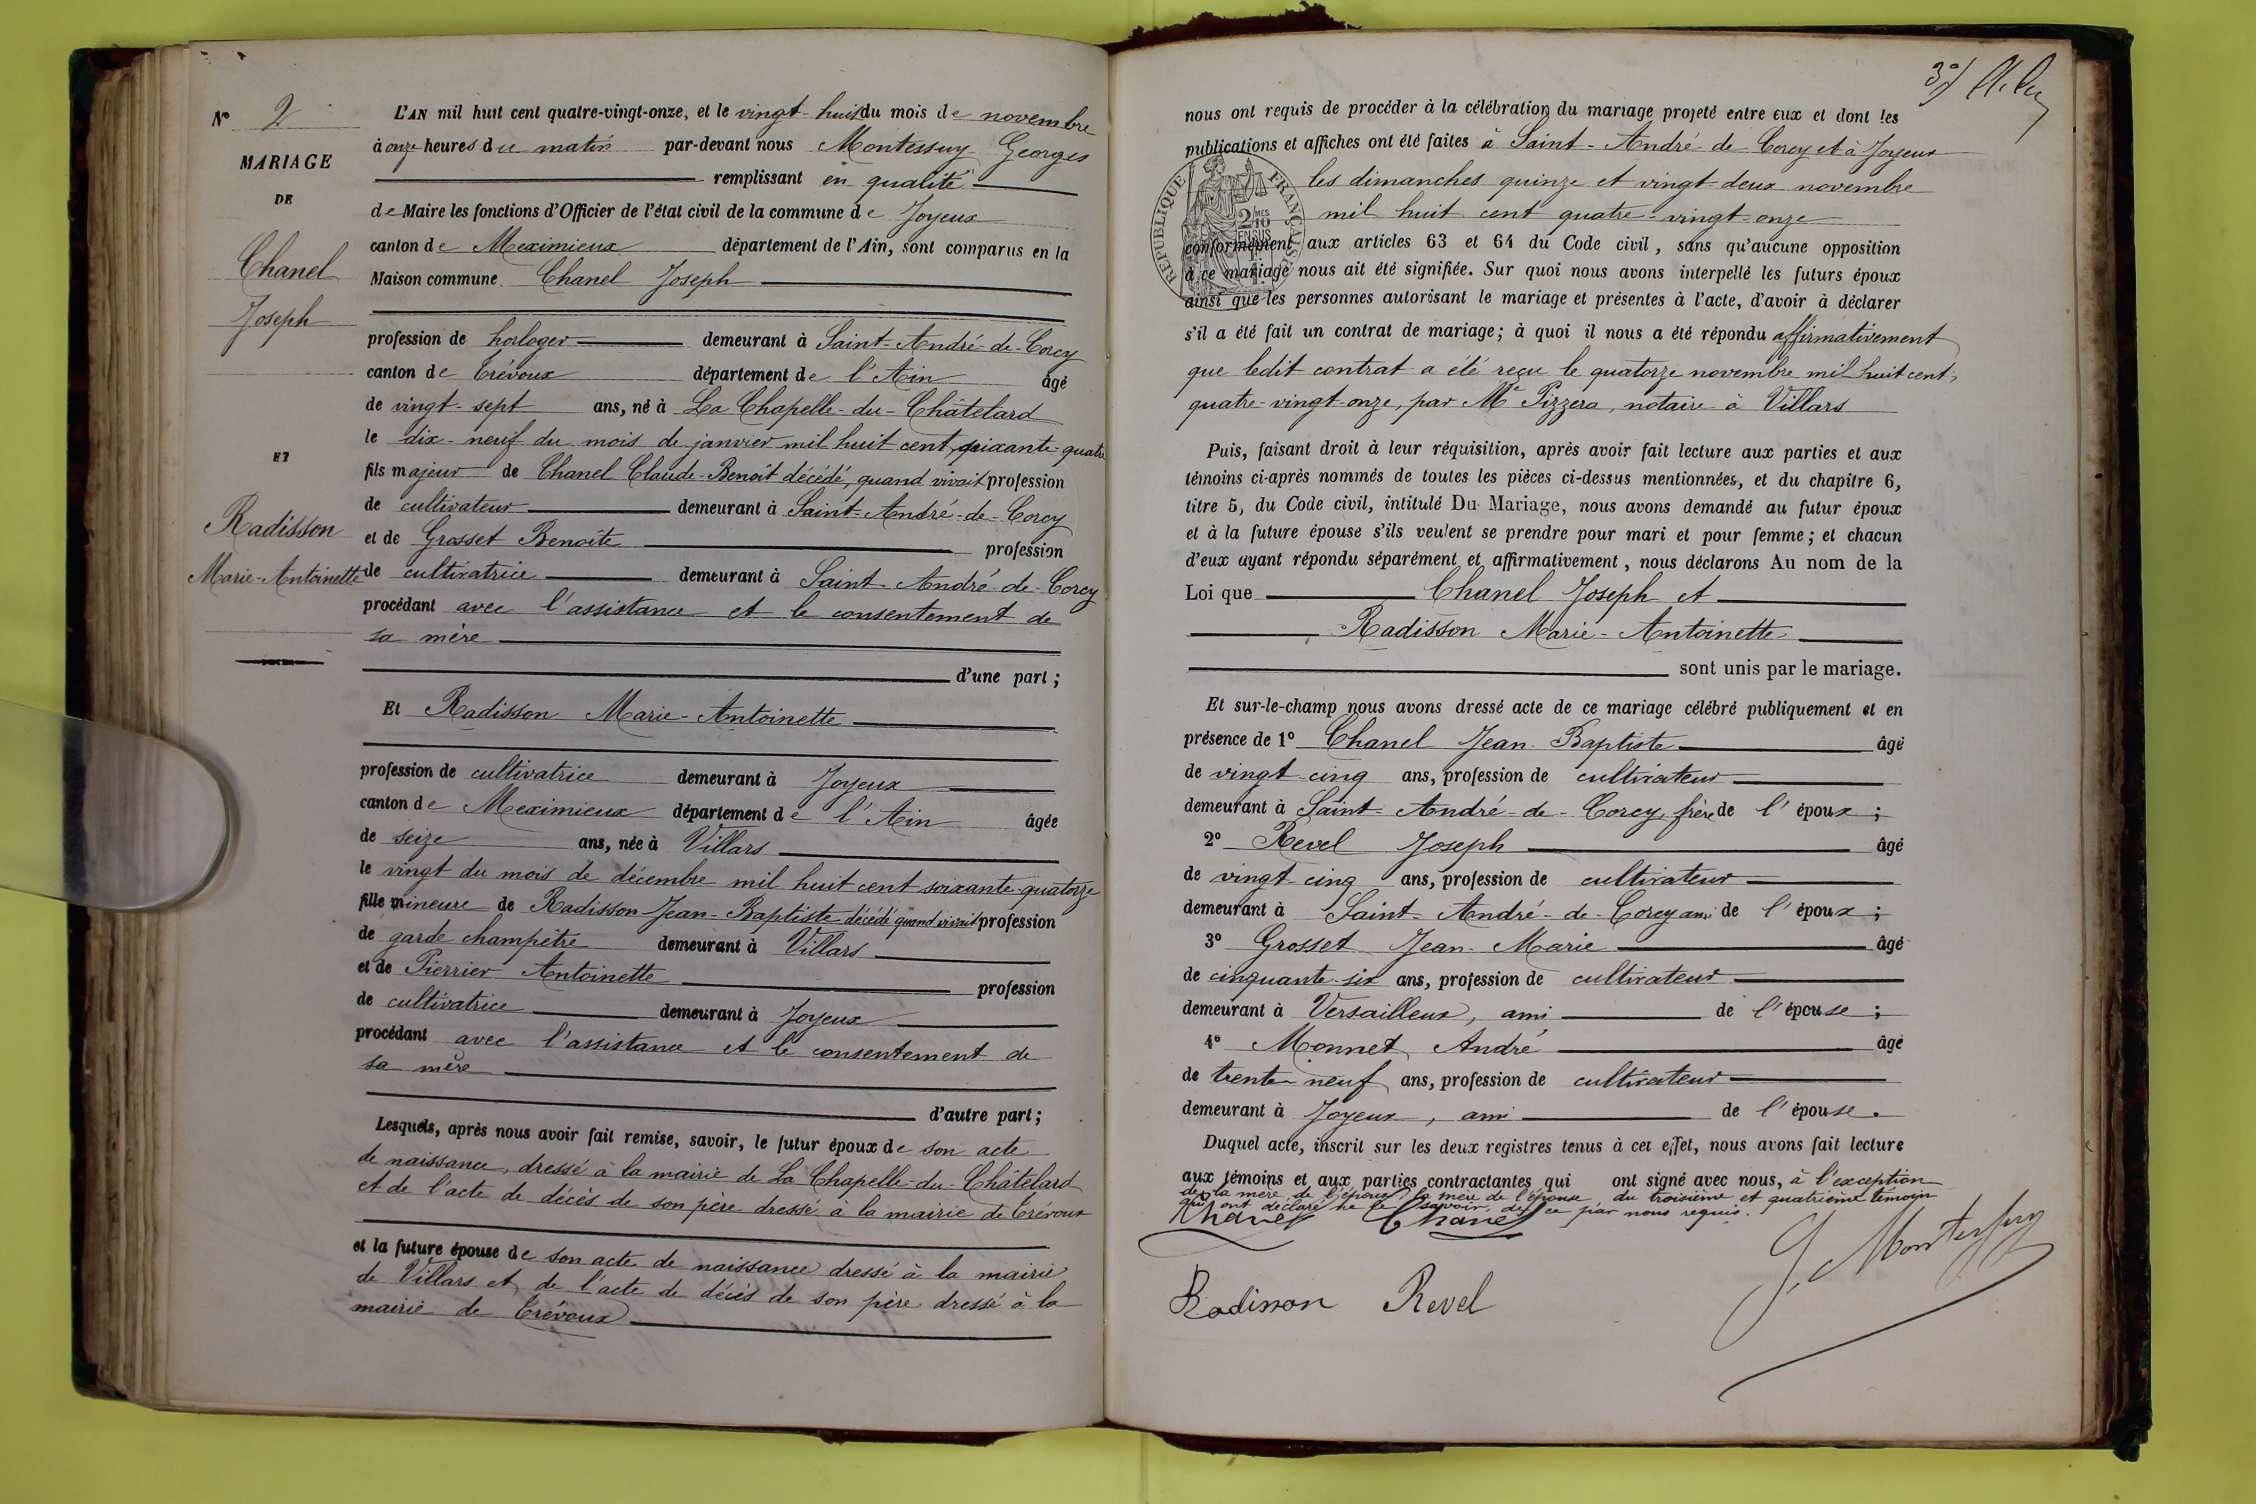 N° 2
MARIAGE
DE
Chanel
Joseph
ET
Radisson
Marie-Antoinette
L'AN mil huit cent quatre-vingt-onze, et le vingt-huit du mois de novembre
à onze heures du matin par-devant nous Montessuy Georges
remplissant en qualité
de Maire les fonctions d'Officier de l'état civil de la commune de Joyeux
canton de Meximieux département de l'Ain, sont comparus en la
Maison commune Chanel Joseph
profession de horloger demeurant à Saint-André-de-Corcy
canton de Trévoux département de l'Ain âgé
de vingt-sept ans, né à La Chapelle-du-Châtelard
le dix-neuf du mois de janvier mil huit cent soixante-quatre
fils majeur de Chanel Claude-Benoît décédé, quand vivait profession
de cultivateur demeurant à Saint-André-de-Corcy
et de Grosset Benoîte profession
de cultivatrice demeurant à Saint-André-de-Corcy
procédant avec l'assistance et le consentement de
sa mère
d'une part;
Et Radisson Marie-Antoinette
profession de cultivatrice demeurant à Joyeux
canton de Meximieux département de l'Ain âgée
de seize ans, née à Villars
le vingt du mois de décembre mil huit cent soixante-quatorze
fille mineure de Radisson Jean-Baptiste décédé quand vivait profession
de garde champêtre demeurant à Villars
et de Pierrier Antoinette profession
de cultivatrice demeurant à Joyeux
procédant avec l'assistance et le consentement de
sa mère
d'autre part;
Lesquels, après nous avoir fait remise, savoir, le futur époux de son acte
de naissance, dressé à la mairie de La Chapelle-du-Châtelard
et de l'acte de décès de son père dressé à la mairie de Trévoux
et la future épouse de son acte de naissance dressé à la mairie
de Villars et de l'acte de décès de son père dressé à la
mairie de Trévoux
nous ont requis de procéder à la célébration du mariage projeté entre eux et dont les
publications et affiches ont été faites à Saint-André-de-Corcy et à Joyeux
les dimanches quinze et vingt-deux novembre
mil huit cent quatre-vingt-onze
RÉPUBLIQUE FRANÇAISE
2/10 EN SUS
conformément aux articles 63 et 64 du Code civil, sans qu'aucune opposition
à ce mariage nous ait été signifiée. Sur quoi nous avons interpellé les futurs époux
ainsi que les personnes autorisant le mariage et présentes à l'acte, d'avoir à déclarer
s'il a été fait un contrat de mariage; à quoi il nous a été répondu affirmativement
que ledit contrat a été reçu le quatorze novembre mil huit cent
quatre-vingt-onze, par Me Pizzera, notaire à Villars
Puis, faisant droit à leur réquisition, après avoir fait lecture aux parties et aux
témoins ci-après nommés de toutes les pièces ci-dessus mentionnées, et du chapitre 6,
titre 5, du Code civil, intitulé Du Mariage, nous avons demandé au futur époux
et à la future épouse s'ils veulent se prendre pour mari et pour femme; et chacun
d'eux ayant répondu séparément et affirmativement, nous déclarons Au nom de la
Loi que Chanel Joseph et
Radisson Marie-Antoinette
sont unis par le mariage.
Et sur-le-champ nous avons dressé acte de ce mariage célébré publiquement et en
présence de 1° Chanel Jean Baptiste âgé
de vingt-cinq ans, profession de cultivateur
demeurant à Saint-André-de-Corcy, frère de l'époux;
2° Revel Joseph âgé
de vingt-cinq ans, profession de cultivateur
demeurant à Saint-André-de-Corcy ami de l'époux;
3° Grosset Jean-Marie âgé
de cinquante-six ans, profession de cultivateur
demeurant à Versailleux, ami de l'épouse;
4° Monnet André âgé
de trente-neuf ans, profession de cultivateur
demeurant à Joyeux, ami de l'épouse.
Duquel acte, inscrit sur les deux registres tenus à cet effet, nous avons fait lecture
aux témoins et aux parties contractantes qui ont signé avec nous, à l'exception
de la mère de l'époux, la mère de l'épouse, du troisième et quatrième témoin
qui ont déclaré ne le savoir, de ce par nous requis.
Chanel Chanel
G. Montessuy
Radisson Revel